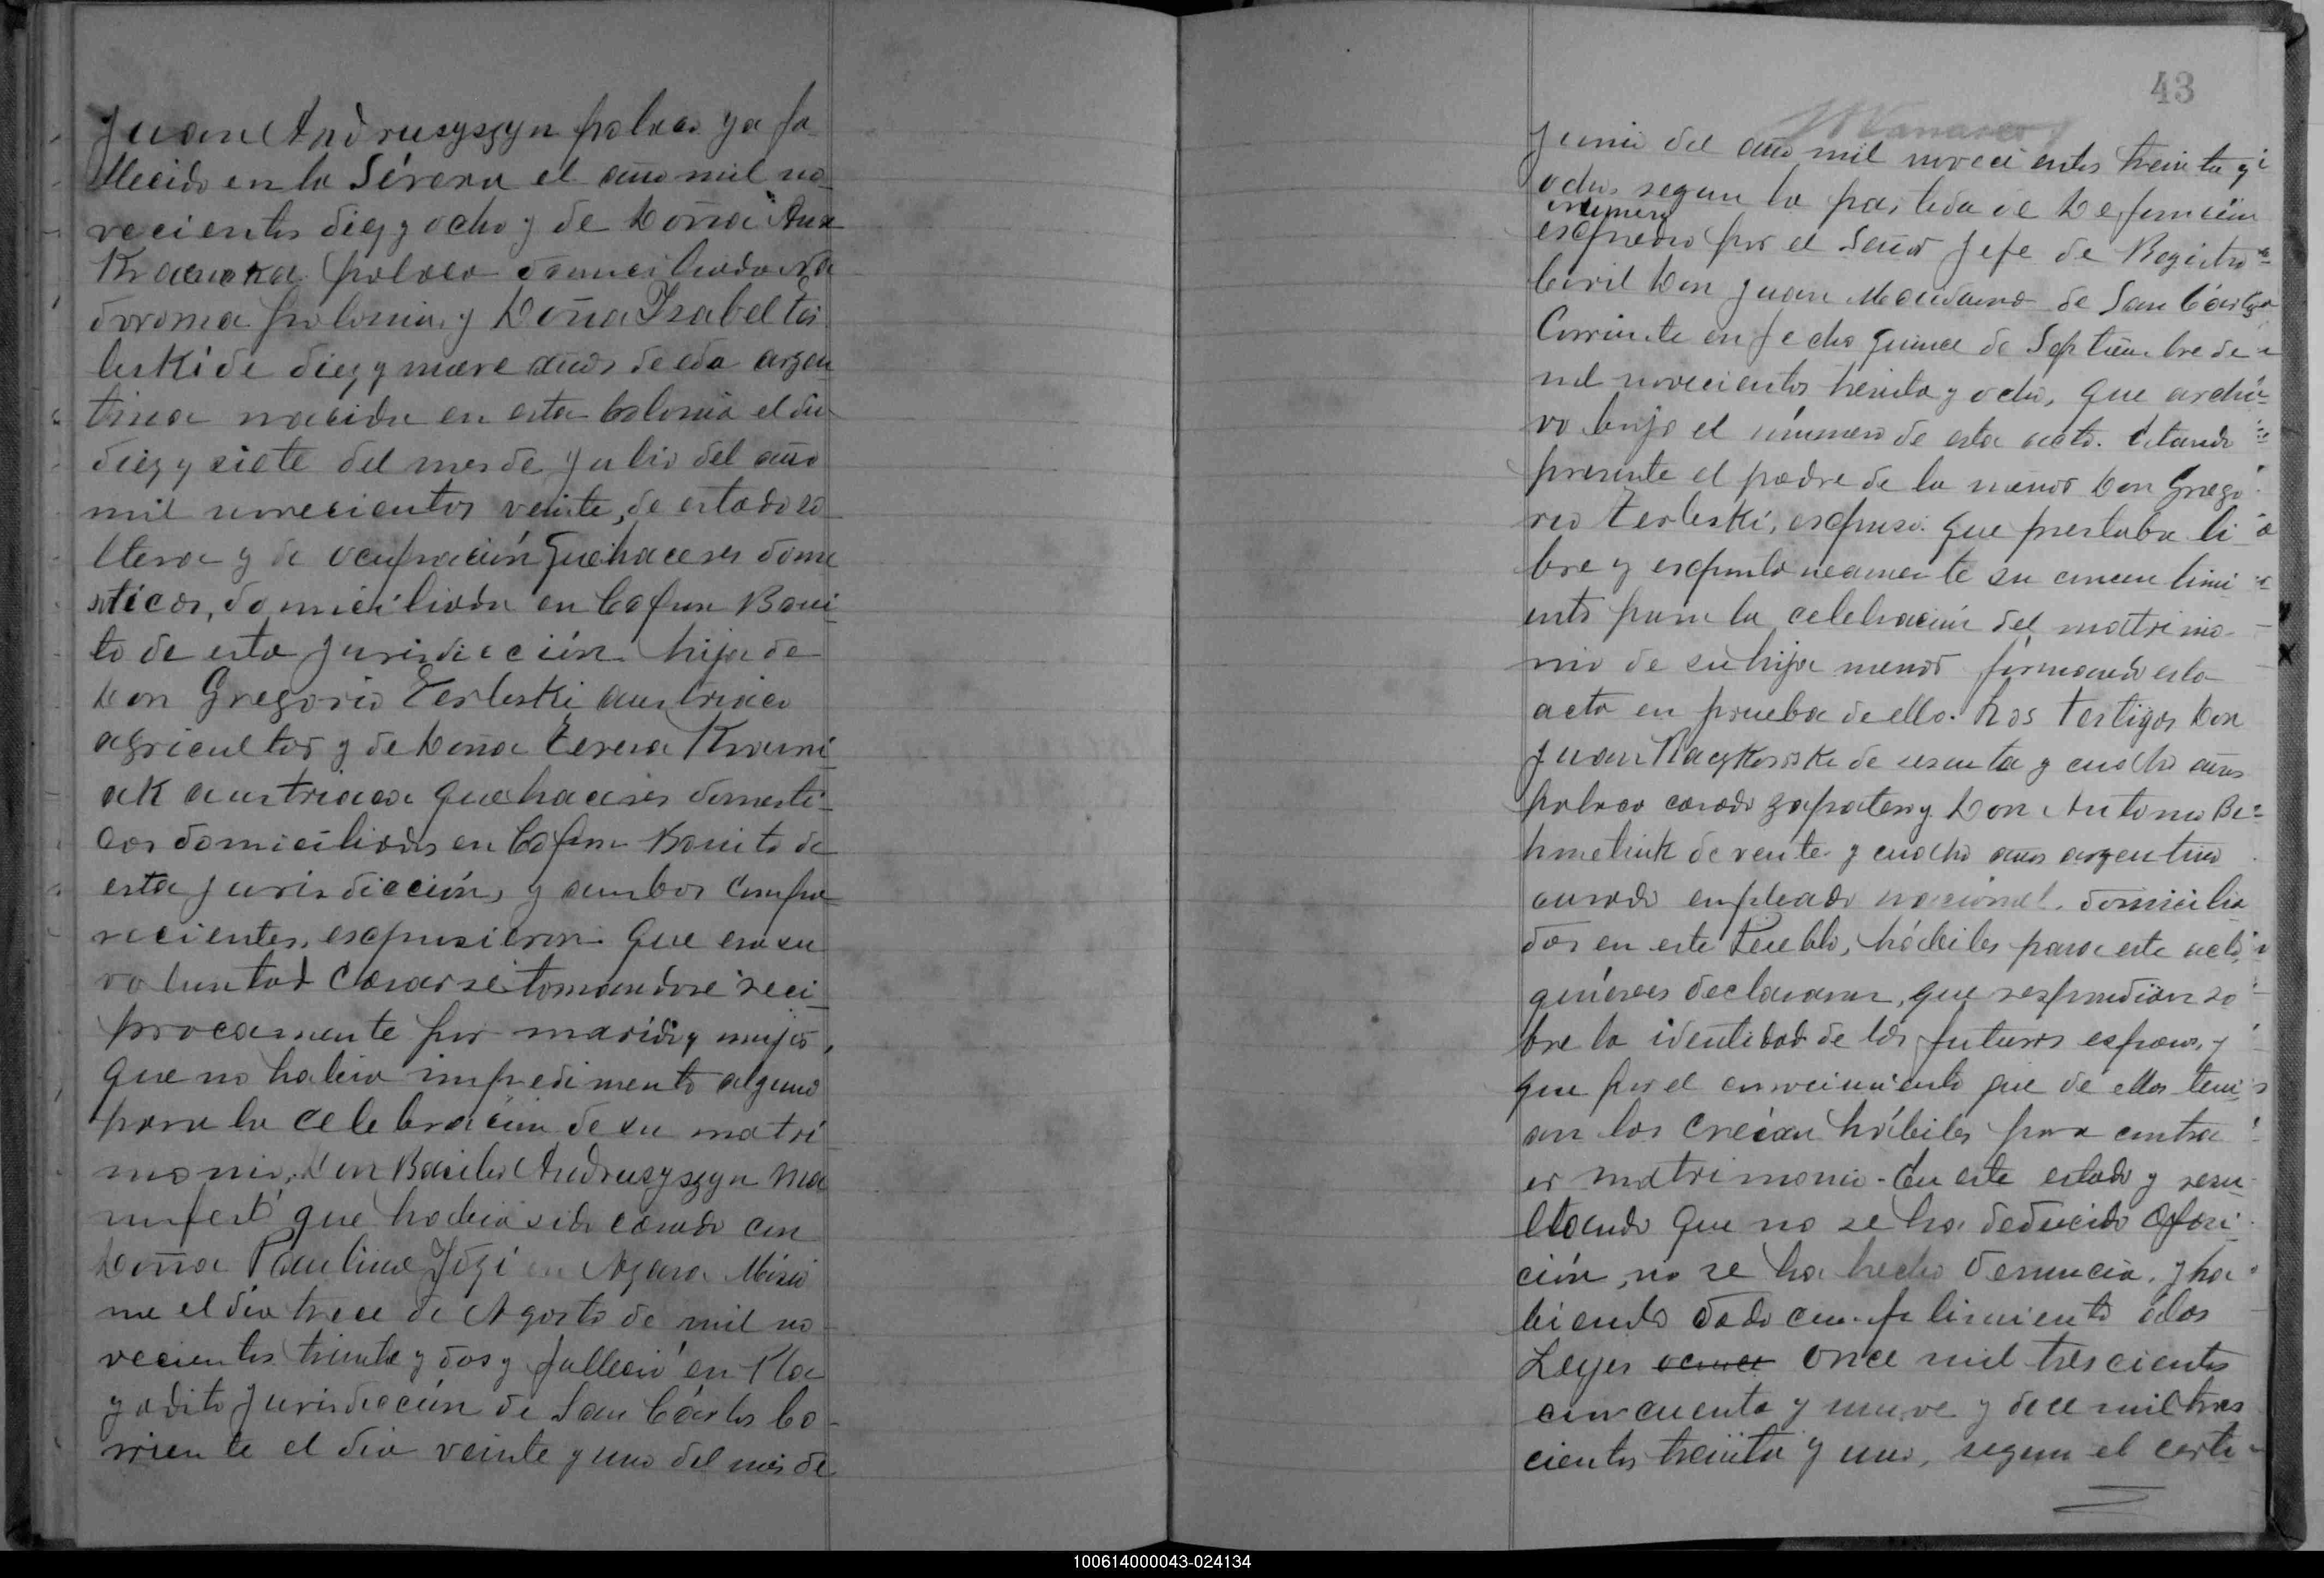 Juan Andrusyszyn polaco ya fa
llecido en la Sérora el año mil no
vecientos diez y ocho y de Doña Ana
polaca domiciliada
polonia y Doña Isabel Ter
leski de diez y nueve años de eda argen
tina nacida en esta Colonia el dia
diez y siete del mes de Julio del año
mil novecientos veinte, de estado so
ltera y de ocupación quehaceres dome
sticos, domiciliada en Cafun Boni
to de esta Jurisdicción hija de
Don Gregorio Terleski austriaco
agricultor y de Doña Teresa Krauni
ak austriaca quehaceres domesti
cos domiciliados en Cafun Bonito de
esta jurisdicción, y ambos Compa
recientes, esqpusieron que era su
voluntad Casarse tomandose reci
procamente por marido y mujer,
que no habia impedimento alguno
para la celebración de su matri
monio, Don Basilio Andrusyszyn ma
nifestó que habia sido casado con
Doña Paulina en Azara Misio
ne el dia trece de Agosto de mil no
vecientos treinta y dos y falleció en Pla
yadito Jurisdicción de San Cárlos Co
rriente el dia veinte y uno del mes de
43
Junio del año mil novecientos treinta y
ocho segun la partida de Defunción
número
esqpuedio por el Señor Jefe de Registro
Civil Don Juan de San Cárlos
Corriente en fecha quince de Septiembre de
mil novecientos treinta y ocho, que archi
vo bajo el número de esta acta. Estando
presente el padre de la menor Don Grego
rio Terleski, esqpuso: que prestaba li
bre y esqpontaneamente su concentimi
ento para la celebración del matrimo
nio de su hija menor firmando esta
acta en prueba de ello. Los Testigos Don
Juan Raczkoski de sesenta y cuatro años
polaco casado zapatero y Don Antonio Be
hmetiuk de veinte y cuatro años argentino
casado empleado nacional, domicilia
dos en este Pueblo, hábiles para este acto,
quienes declararon, que respondian so
bre la identidad de los futuros esposos, y
que por el conocimiento que de ellos teni
an los Creian hábiles para contra
er matrimonio. En este estado y resu
ltando que no se ha deducido Oposi
ción, no se ha hecho denuncia, y ha
biendo dado cumplimiento alas
Leyes once mil trescientos
cincuenta y nueve y doce mil tres
cientos treinta y uno, segun el certi
100614000043-024134